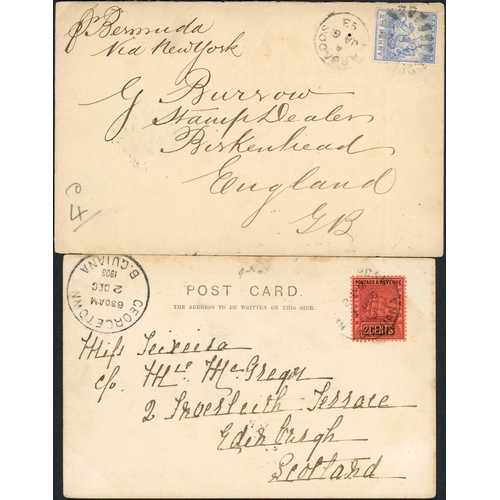 pr Bermuda
Via New York
G Burrow
Stamp Dealer
Birkenhead
England
GB
POST CARD.
THE ADDRESS TO BE WRITTEN ON THIS SIDE.
GEORGETOWN
630AM
2 DEC
1903
B. GUIANA
POSTAGE & REVENUE
2 CENTS
Miss Teixeira
c/o Mrs McGregor
2 Inverleith Terrace
Edinburgh
Scotland